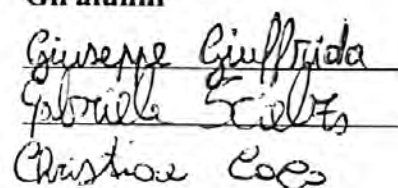 Gli alunni
Giuseppe Giuffrida
Gabriele
Christian Coco